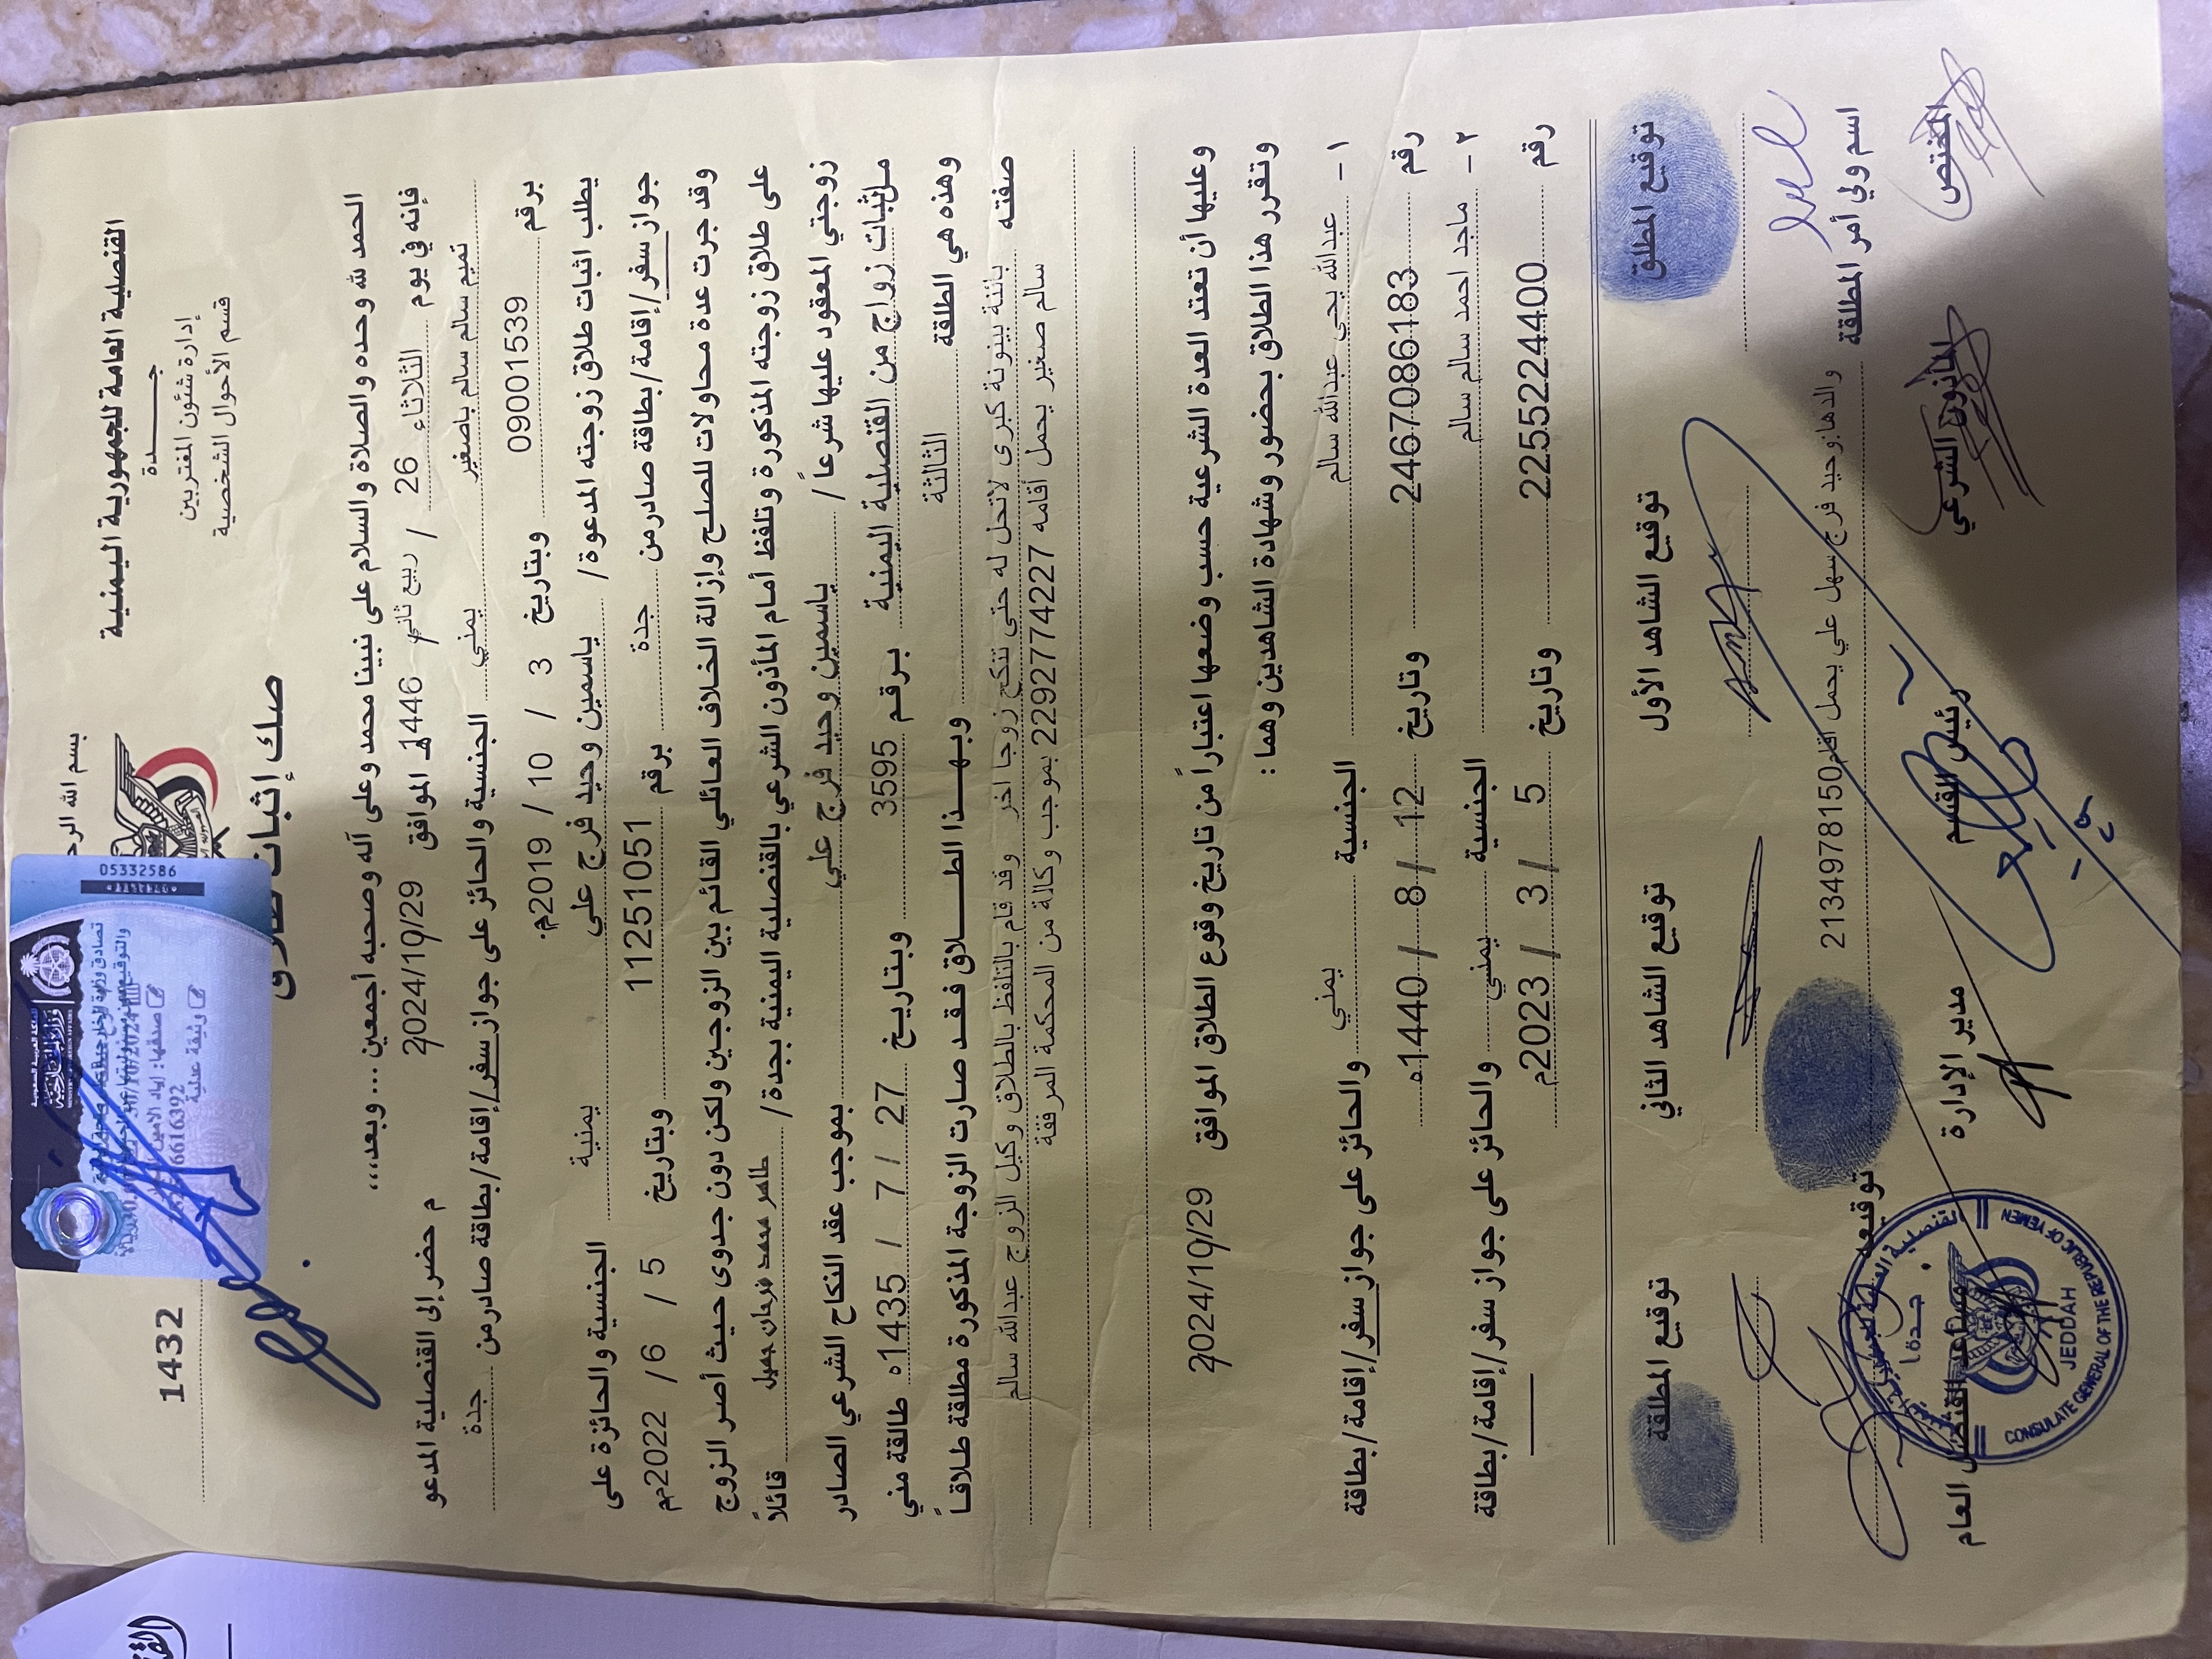 بسم الله الرح
القنصلية العامة للجمهورية اليمنية
جـــــــدة
إدارة شئون المغتربين
قسم الأحوال الشخصية
1432
05332586
وزارة الخارجية
وثيقة عدلية
صك إثبات طلاق
الحمد لله وحده والصلاة والسلام على نبينا محمد وعلى آله وصحبه أجمعين ... وبعد،،،
فإنه في يوم الثلاثاء 26 / ربيع ثاني / 1446هـ الموافق 2024/10/29 م حضر إلى القنصلية المدعو
تميم سالم سالم باصغير يمني الجنسية والحائز على جواز سفر/إقامة/بطاقة صادر من جدة
برقم 09001539 وبتاريخ 3 / 10 / 2019م.
يطلب اثبات طلاق زوجته المدعوة/ ياسمين وحيد فرج علي يمنية الجنسية والحائزة على
جواز سفر/إقامة/بطاقة صادر من جدة برقم 11251051 وبتاريخ 5 / 6 / 2022م
وقد جرت عدة محاولات للصلح وإزالة الخلاف العائلي القائم بين الزوجين ولكن دون جدوى حيث أصر الزوج
على طلاق زوجته المذكورة وتلفظ أمام المأذون الشرعي بالقنصلية اليمنية بجدة/ طاهر محمد فرحان جميل قائلاً
زوجتي المعقود عليها شرعاً/ ياسمين وحيد فرج علي بموجب عقد النكاح الشرعي الصادر
من اثبات زواج من القنصلية اليمنية برقم 3595 وبتاريخ 27 / 7 / 1435ه طالقة مني
وهذه هي الطلقة الثالثة وبهـــذا الطـــلاق فـقـد صارت الزوجة المذكورة مطلقة طلاقـاً
صفته بائنة بينونة كبرى لاتحل له حتى تنكح زوجا اخر وقد قام بالتلفظ بالطلاق وكيل الزوج عبدالله سالم
سالم صغير يحمل أقامه 2292774227 بموجب وكالة من المحكمة المرفقة
وعليها أن تعتد العدة الشرعية حسب وضعها اعتباراً من تاريخ وقوع الطلاق الموافق 2024/10/29
وتقرر هذا الطلاق بحضور وشهادة الشاهدين وهما :
١- عبدالله يحي عبدالله سالم الجنسية يمني والحائز على جواز سفر/إقامة/بطاقة
رقم 2467086183 وتاريخ 12 / 8 / 1440ه
٢- ماجد احمد سالم سالم الجنسية يمني والحائز على جواز سفر/إقامة/بطاقة
رقم 2255224400 وتاريخ 5 / 3 / 2023م
توقيع المطلق توقيع الشاهد الأول توقيع الشاهد الثاني توقيع المطلقة
اسم ولي أمر المطلقة والدها: وحيد فرج سهل علي يحمل اقامه 2134978150 توقيعه
المختص المأذون الشرعي رئيس القسم مدير الإدارة مساعد القنصل العام
جدة
JEDDAH
CONSULATE GENERAL OF THE REPUBLIC OF YEMEN